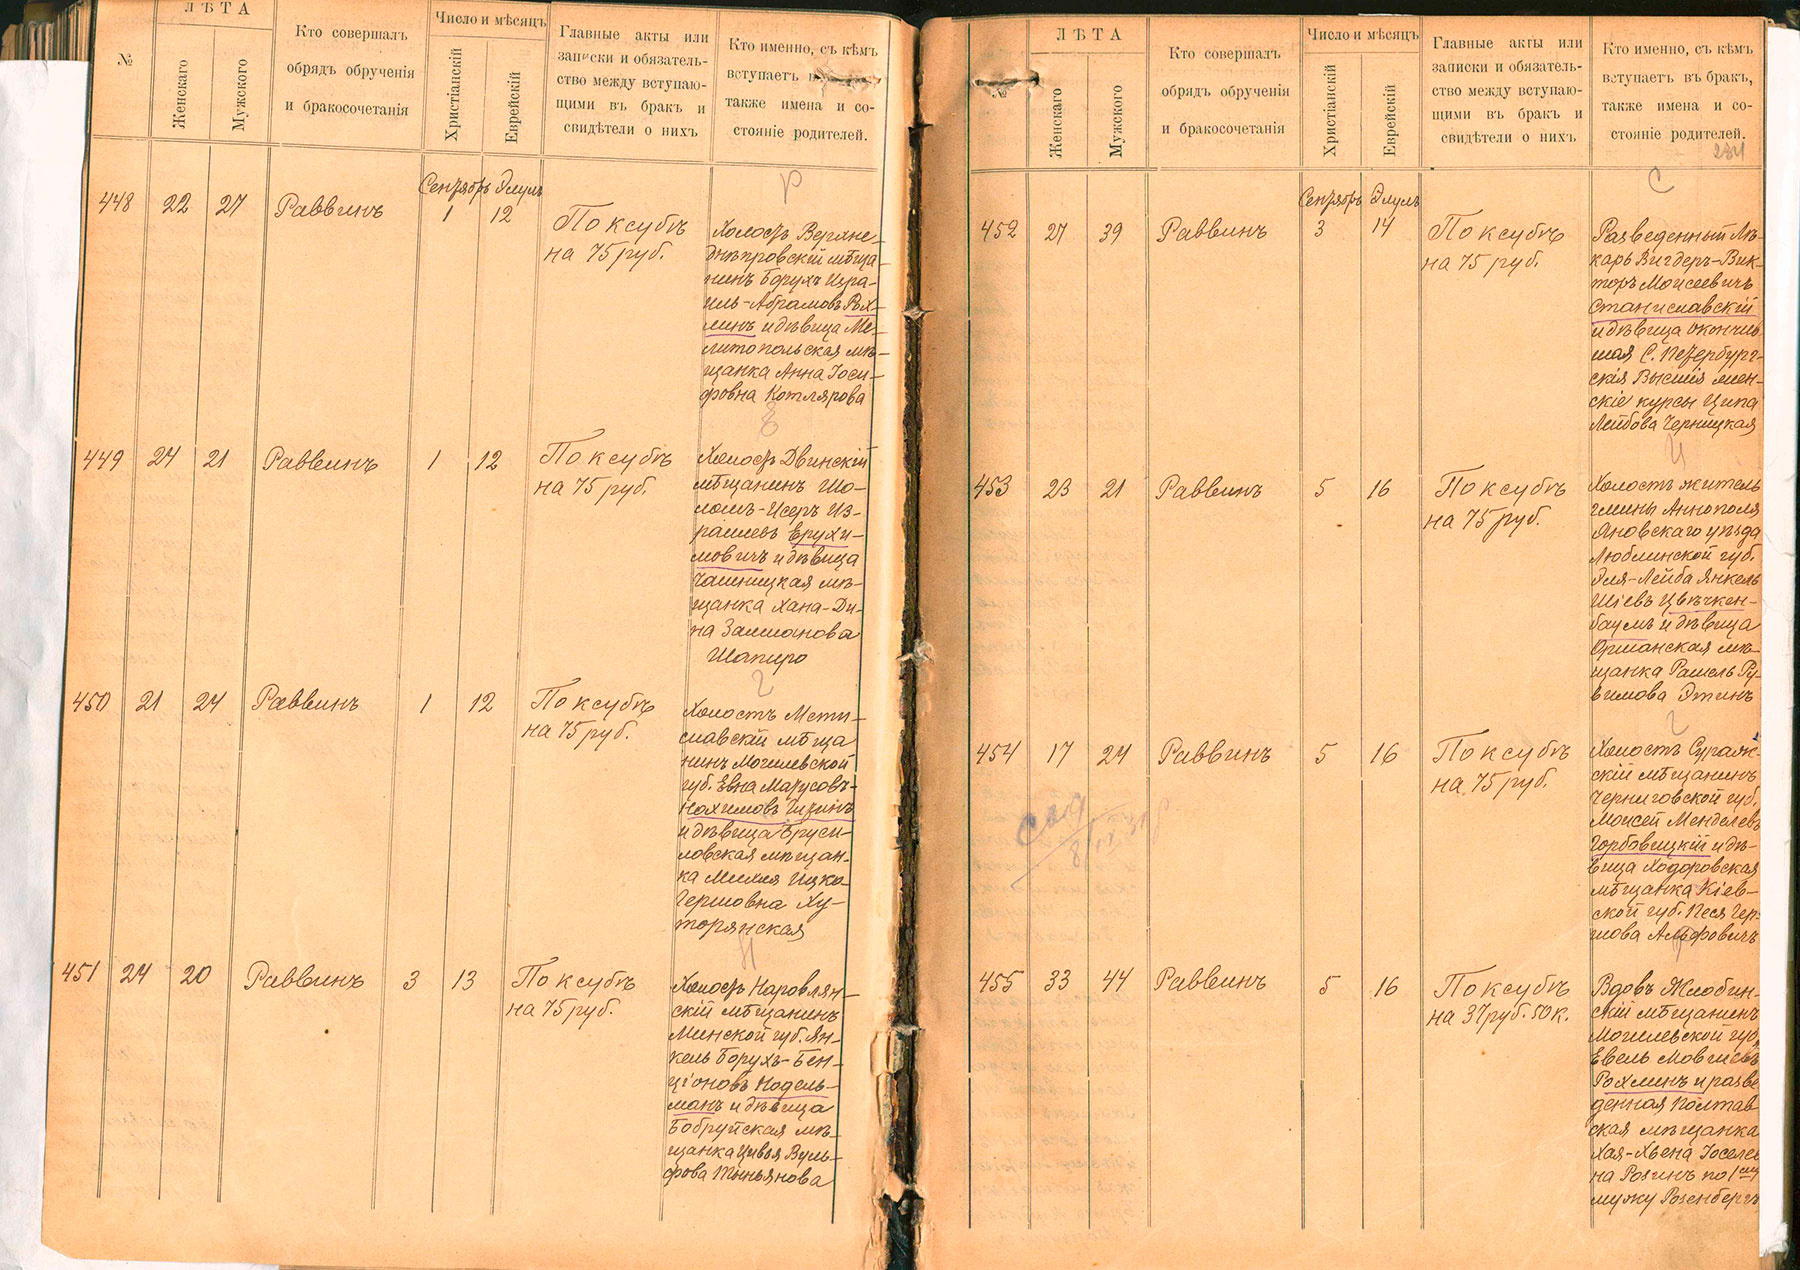 №
ЛѢТА
Женскаго
Мужского
Кто совершалъ
обрядъ обрученія
и бракосочетанія
Число и мѣсяцъ
Христіанскій
Еврейскій
Главные акты или
записки и обязатель-
ство между вступаю-
щими въ бракъ и
свидѣтели о нихъ
Кто именно, съ кѣмъ
вступаетъ
также имена и со-
стояніе родителей.
Р
448 22 27 Раввинъ
Сентябрь Элулъ
1 12
По ксубѣ
на 75 руб.
Холостъ Верхне-
днѣпровскій мѣща-
нинъ Борухъ Изра-
иль-Абрамовъ Рох-
линъ и дѣвица Ме-
литопольская мѣ-
щанка Анна Іоси-
фовна Котлярова
Е
449 24 21 Раввинъ 1 12
По ксубѣ
на 75 руб.
Холостъ Двинскій
мѣщанинъ Шо-
ломъ-Исеръ Из-
раилевъ Ерухи-
мовичъ и дѣвица
Чашницкая мѣ-
щанка Хана-Ди-
на Залманова
Шапиро
Г
450 21 24 Раввинъ 1 12
По ксубѣ
на 75 руб.
Холостъ Мсти-
славскій мѣща
нинъ Могилевской
губ. Евна Марусовъ-
Нохимовъ Гизинъ
и дѣвица Бруси-
ловская мѣщан-
ка Михля Ицко-
Гершовна Ху-
торянская
Н
451 24 20 Раввинъ 3 13
По ксубѣ
на 75 руб.
Холостъ Наровлян-
скій мѣщанинъ
Минской губ. Ян-
кель Борухъ-Бен-
ціоновъ Нодель-
манъ и дѣвица
Бобруйская мѣ-
щанка Цивья Вуль-
фова Тыньянова
№
ЛѢТА
Женскаго
Мужского
Кто совершалъ
обрядъ обрученія
и бракосочетанія
Число и мѣсяцъ
Христіанскій
Еврейскій
Главные акты или
записки и обязатель-
ство между вступаю-
щими въ бракъ и
свидѣтели о нихъ
Кто именно, съ кѣмъ
вступаетъ въ бракъ,
также имена и со-
стояніе родителей.
234
С
452 27 39 Раввинъ
Сентябрь Элулъ
3 14
По ксубѣ
на 75 руб.
Разведенный лѣ-
карь Вигдеръ-Вик-
торъ Моисеевичъ
Станиславскій
и дѣвица окончив
шая С. Петербург-
скія Высшія жен-
скіе курсы Ципа
Лейбова Черницкая
Ц
453 23 21 Раввинъ 5 16
По ксубѣ
на 75 руб.
Холостъ житель
гмины Аннополя
Яновскаго уѣзда
Люблинской губ.
Эля-Лейба Янкель
Шіевъ Цвѣчкен-
баумъ и дѣвица
Оршанская мѣ-
щанка Рашель Ру-
вимова Этинъ
Г
454 17 24 Раввинъ 5 16
По ксубѣ
на 75 руб.
Холостъ Сураж-
скій мѣщанинъ
Черниговской губ.
Моисей Менделевъ
Горбовицкій и дѣ-
вица Ходоровская
мѣщанка Кіев-
ской губ. Песя Гер-
шова Альфовичъ
Р
455 33 44 Раввинъ 5 16
По ксубѣ
на 37 руб. 50 к.
Вдовъ Жлобин-
скій мѣщанинъ
Могилевской губ.
Евель Мовшевъ
Рохлинъ и разве
денная Полтав
ская мѣщанка
Хая-Хьена Іоселев
на Розинъ по 1ому
мужу Розенбергъ